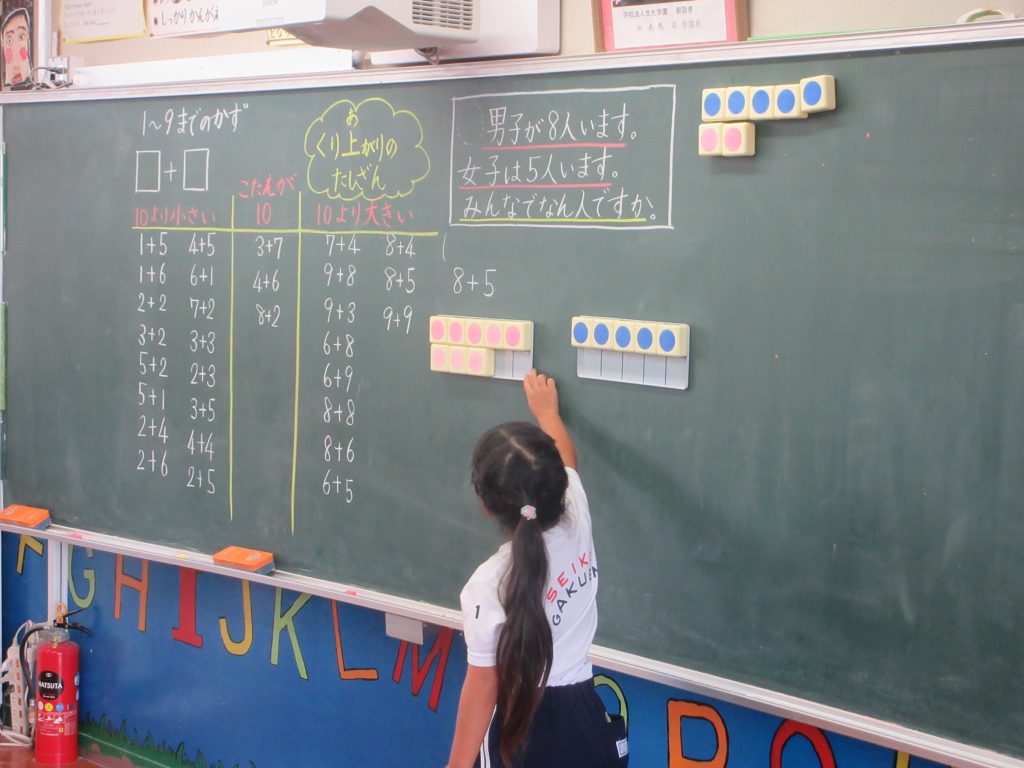 しっかりかんがえ
学校法人生大学園・創設者
1〜9までのかず
□+□
お
くり上がりの
たしざん
10より小さい
こたえが
10
10より大きい
1+5 4+5 3+7 7+4 8+4
1+6 6+1 4+6 9+8 8+5
2+2 7+2 8+2 9+3 9+9
3+2 3+3 6+8
5+2 2+3 6+9
5+1 3+5 8+8
2+4 4+4 8+6
2+6 2+5 6+5
男子が8人います。
女子は5人います。
みんなでなん人ですか。
8+5
1
SEIK
GAKUEN
HATSUTA
F G H I J K L M